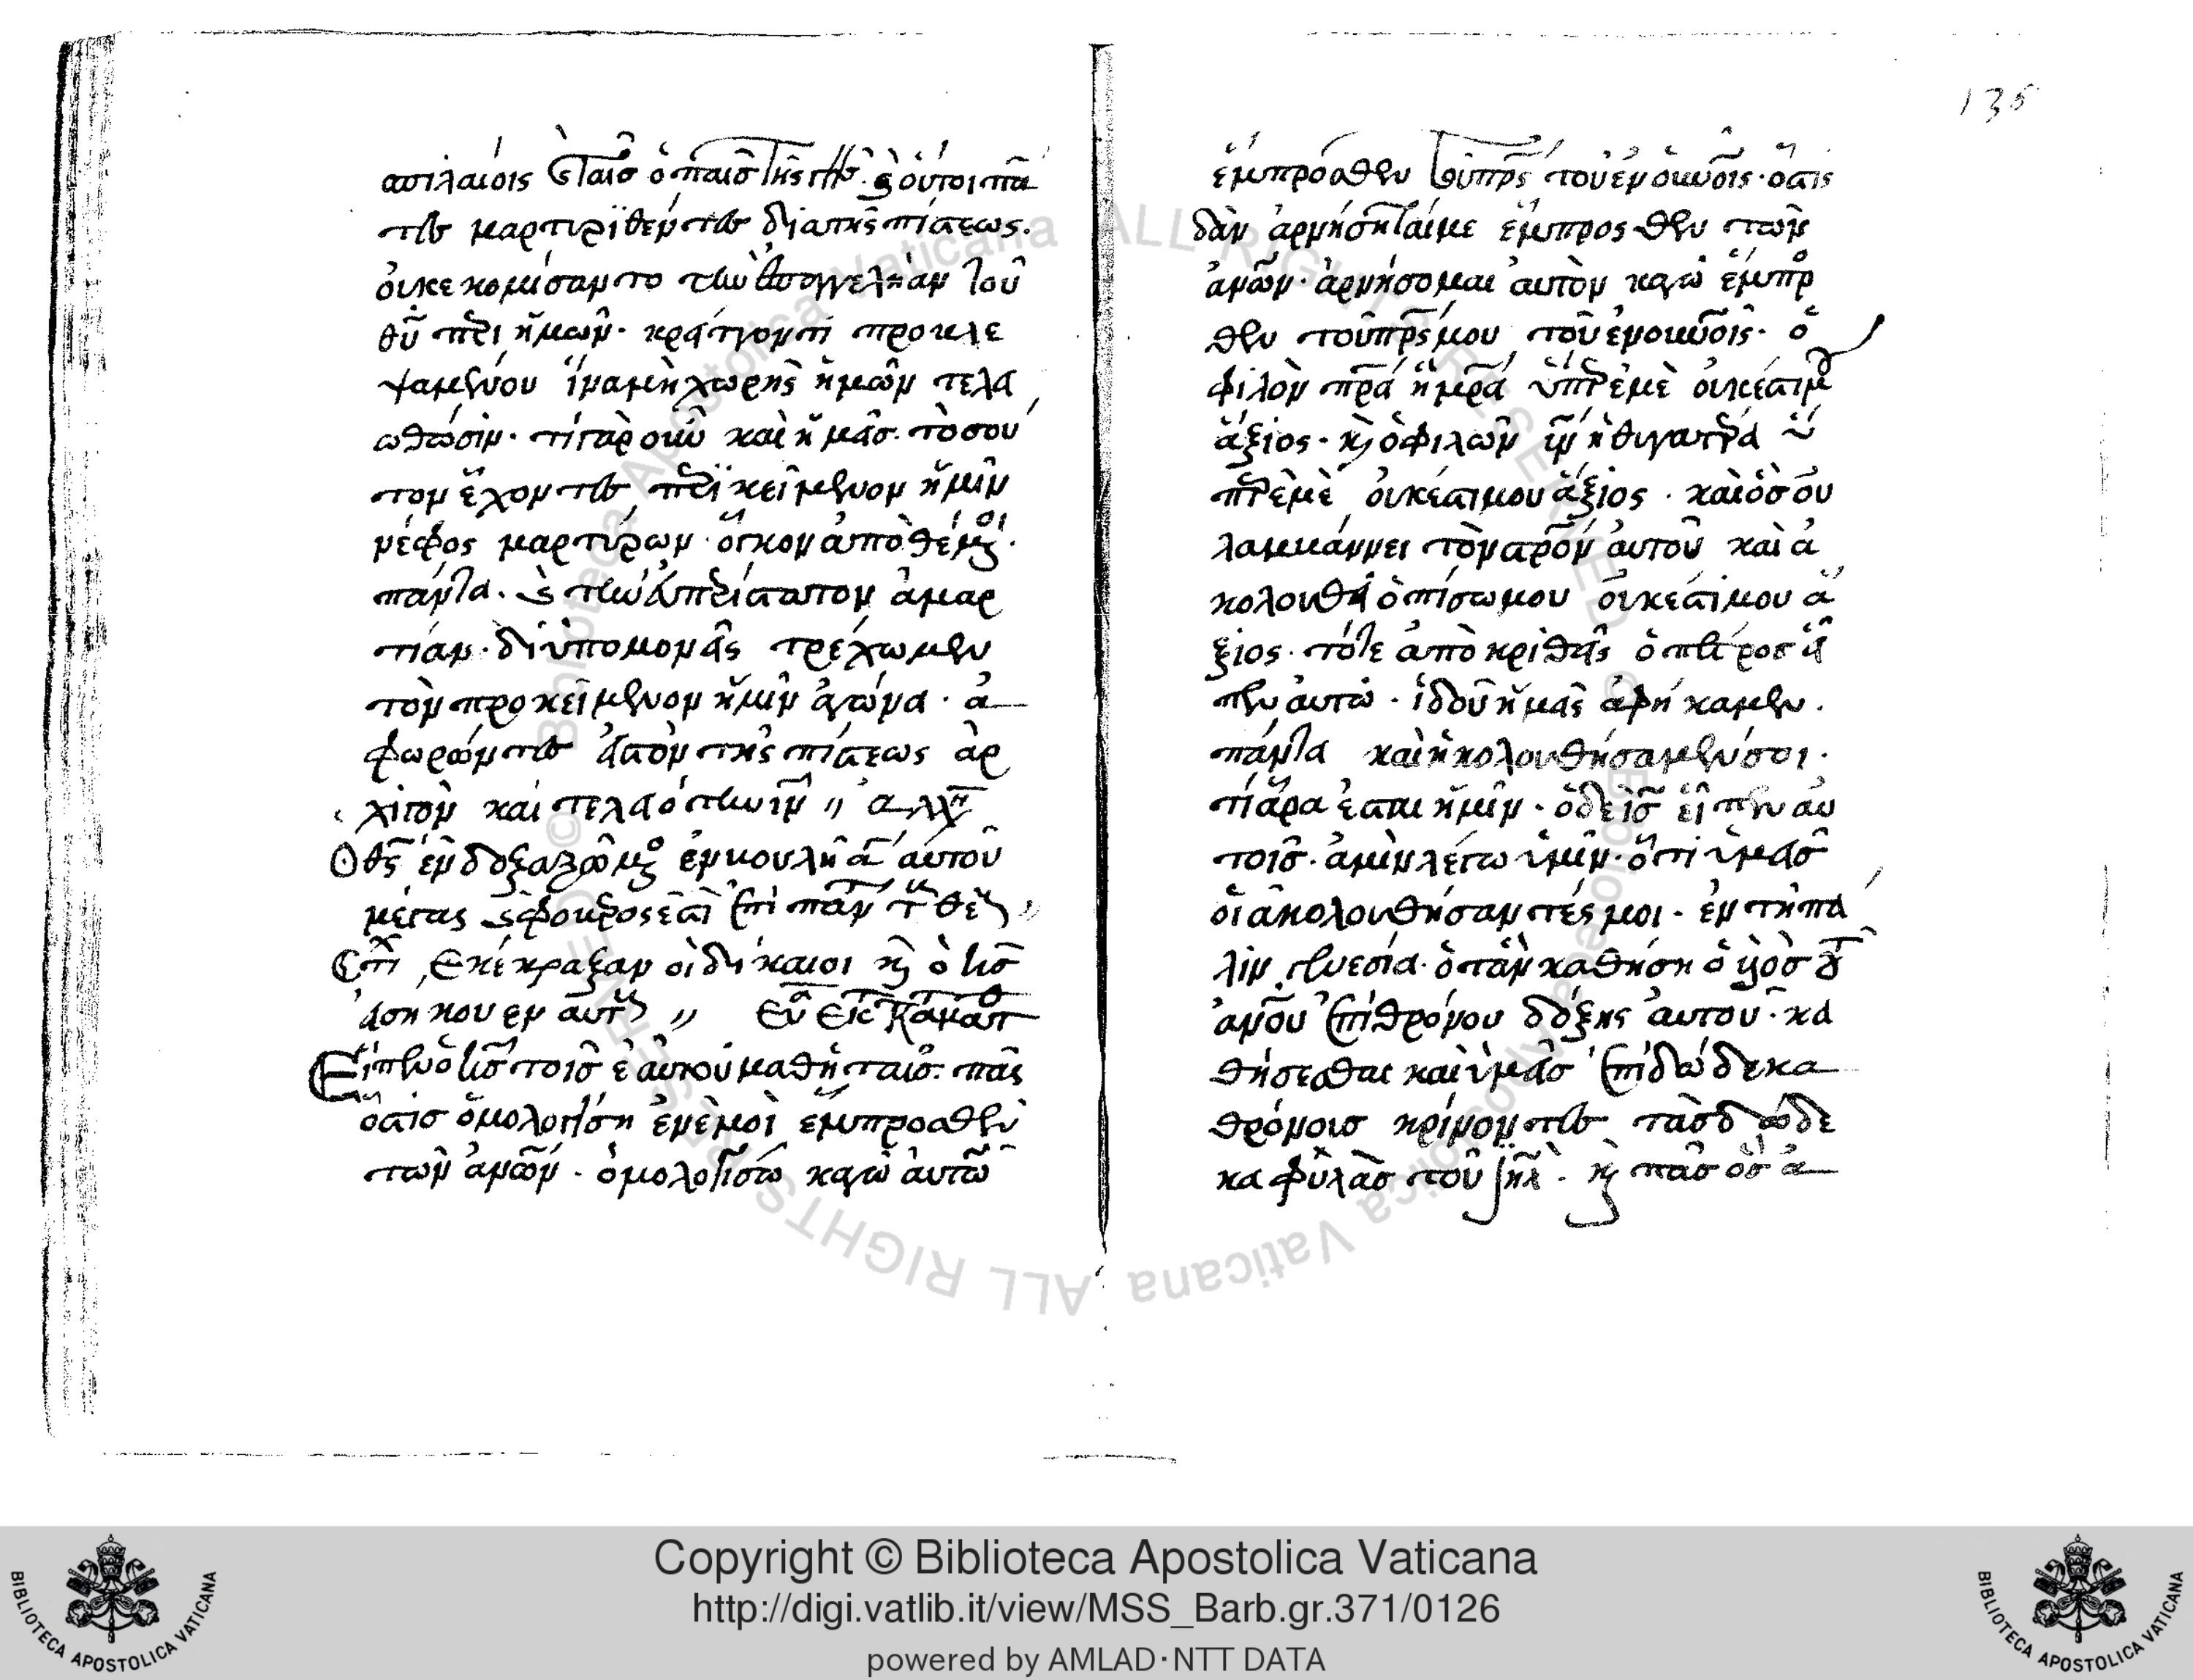 135
ασπλαίοις ἐταῖσ ὀπαῖσ τῆς γῆς. καὶ οὗτοι πά
τες μαρτυρϊθέντες διὰ τῆς πίστεως.
οὐκ ἐκομίσαντο τὴν ἐπαγγελίαν τοῦ
θῦ περὶ ἡμῶν. κράτγον τι προβλε
ψαμένου ἵνα μὴ χωρὴς ἡμῶν τελει
ωθῶσιν. τί γὰρ οὖν καὶ ἡμᾶσ. τοσοῦ
τον ἔχοντες περϊκείμενον ἡμῖν
νέφος μαρτύρων. ὄγκον ἀποθέμενοι.
πάντα. καὶ τὴν εὐπερίστατον ἁμαρ
τίαν. δι ὑπομονῆς τρέχωμεν
τὸν προκείμενον ἡμῖν ἀγῶνα. ἀ
φωρῶντες εἰς τὸν τῆς πίστεως ἀρ
χιγὸν καὶ τελειότην ιν ,, ἀλλη
Ὁ θς ἐνδοξαζόμενος ἐν βουλῆ ἁγίων αὐτοῦ
μέγας καὶ φοβερός ἐστὶ ἐπὶ πάν
στι, Ἐκέκραξαν οἱ δίκαιοι καὶ ὁ κσ
εἰσήκουεν αὐτῶν ,, Εὐ ἐκ τοῦ κατὰ ματθ
Εἶπεν ὁ κσ τοῖσ ἑαυτοῦ μαθηταῖσ. πᾶς
ὅστισ ὁμολογήση ἐν ἐμοὶ ἔμπροσθεν
τῶν ἀνῶν. ὁμολογήσω καγὼ ἀυτῶ
ἔμπρόσθεν τοῦ πρς τοῦ ἐν οὐνοῖς. ὅστις
δὰν ἀρνήσηταί με ἔμπροσθεν τῶν
ἀνῶν. ἀρνήσομαι ἀυτὸν καγὼ ἔμπρο
θεν τοῦ πρς μου τοῦ ἐν οὐνοῖς. ὁ
φιλὸν πρα ἢ μρα ὑπὲρ ἐμὲ οὐκ ἔστι μου
ἄξιος. καὶ ὁ φιλῶν υν ἢ θιγατέρα ὑ
πὲρ ἐμὲ οὐκ ἔστι μου ἄξιος. καὶ ὃσ οὐ
λαμβάννει τὸν στρον ἀυτοῦ καὶ ἀ
κολουθεῖ ὀπίσω μου οὐκ ἔστι μου ἄ
ξιος. τότε ἀποκριθεὶς ὁ πέτροσ εἶ
πεν ἀυτῶ. ἰδοῦ ἡμεῖς ἀφήκαμεν.
πάντα καὶ ἠκολουθήσαμέν σοι.
τί ἄρα ἔσται ἡμῖν. ὁ δὲ ἰσ εἶπεν αὐ
τοῖσ. ἀμὴν λέγω ὑμῖν. ὅτι ὑμεῖσ
οἱ ἀκολουθήσαντές μοι. ἐν τῆ πα
λιν γενεσία. ὁτὰν καθήση ὁ υἱὸσ τοῦ
ἀνου ἐπὶ θρόνου δόξης ἀυτοῦ. κα
θήσεσθαι καὶ ὑμεῖσ ἐπὶ δώδεκα
θρόνοισ κρίνοντες τὰσ δώδε
κα φυλὰσ τοῦ ιηλ. καὶ πᾶσ ὃσ ἀ
Copyright © Biblioteca Apostolica Vaticana
http://digi.vatlib.it/view/MSS_Barb.gr.371/0126
powered by AMLAD·NTT DATA